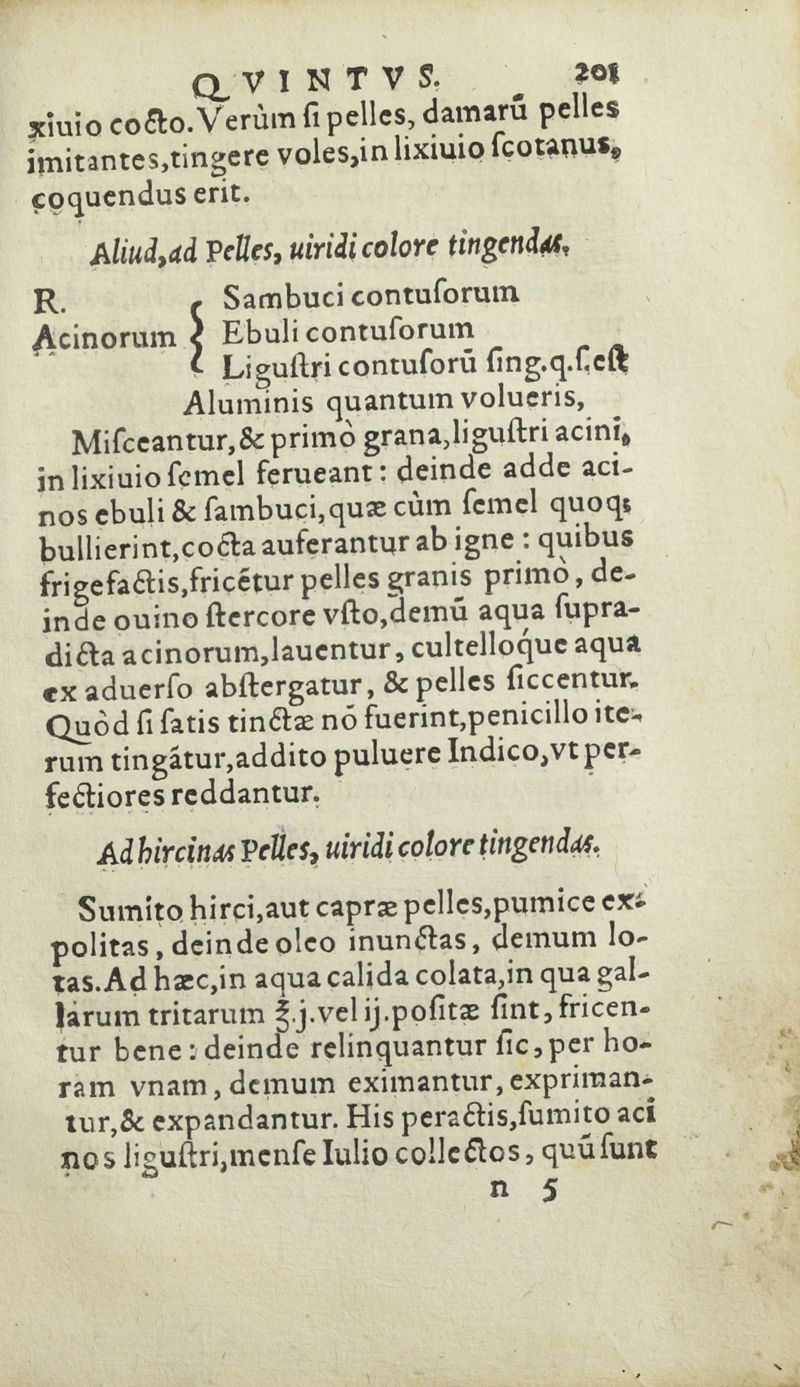 QVINTVS. 201
xiuio cocto. Verùm ſi pelles, damarũ pelles
imitantes, tingere voles, in lixiuio ſcotanus,
coquendus erit.
Aliud, ad Pelles, uiridi colore tingendas.
R. Sambuci contuſorum
Acinorum { Ebuli contuſorum
Liguſtri contuſorũ ſing. q. ſ. eſt
Aluminis quantum volueris,
Miſceantur, & primò grana, liguſtri acini,
in lixiuio ſemel ferueant: deinde adde aci-
nos ebuli & ſambuci, quæ cùm ſemel quoq;
bullierint, cocta auferantur ab igne: quibus
frigefactis, fricẽtur pelles granis primò, de-
inde ouino ſtercore vſto, demũ aqua ſupra-
dicta acinorum, lauentur, cultelloque aqua
ex aduerſo abſtergatur, & pelles ſiccentur.
Quòd ſi ſatis tinctæ nõ fuerint, penicillo ite-
rum tingãtur, addito puluere Indico, vt per-
fectiores reddantur.
Ad hircinas Pelles, uiridi colore tingendas.
Sumito hirci, aut capræ pelles, pumice ex-
politas, deinde oleo inunctas, demum lo-
tas. Ad hæc, in aqua calida colata, in qua gal-
larum tritarum ℥.j. vel ij. poſitæ ſint, fricen-
tur bene: deinde relinquantur ſic, per ho-
ram vnam, demum eximantur, expriman-
tur, & expandantur. His peractis, ſumito aci
nos liguſtri, menſe Iulio collectos, quũ ſunt
n 5